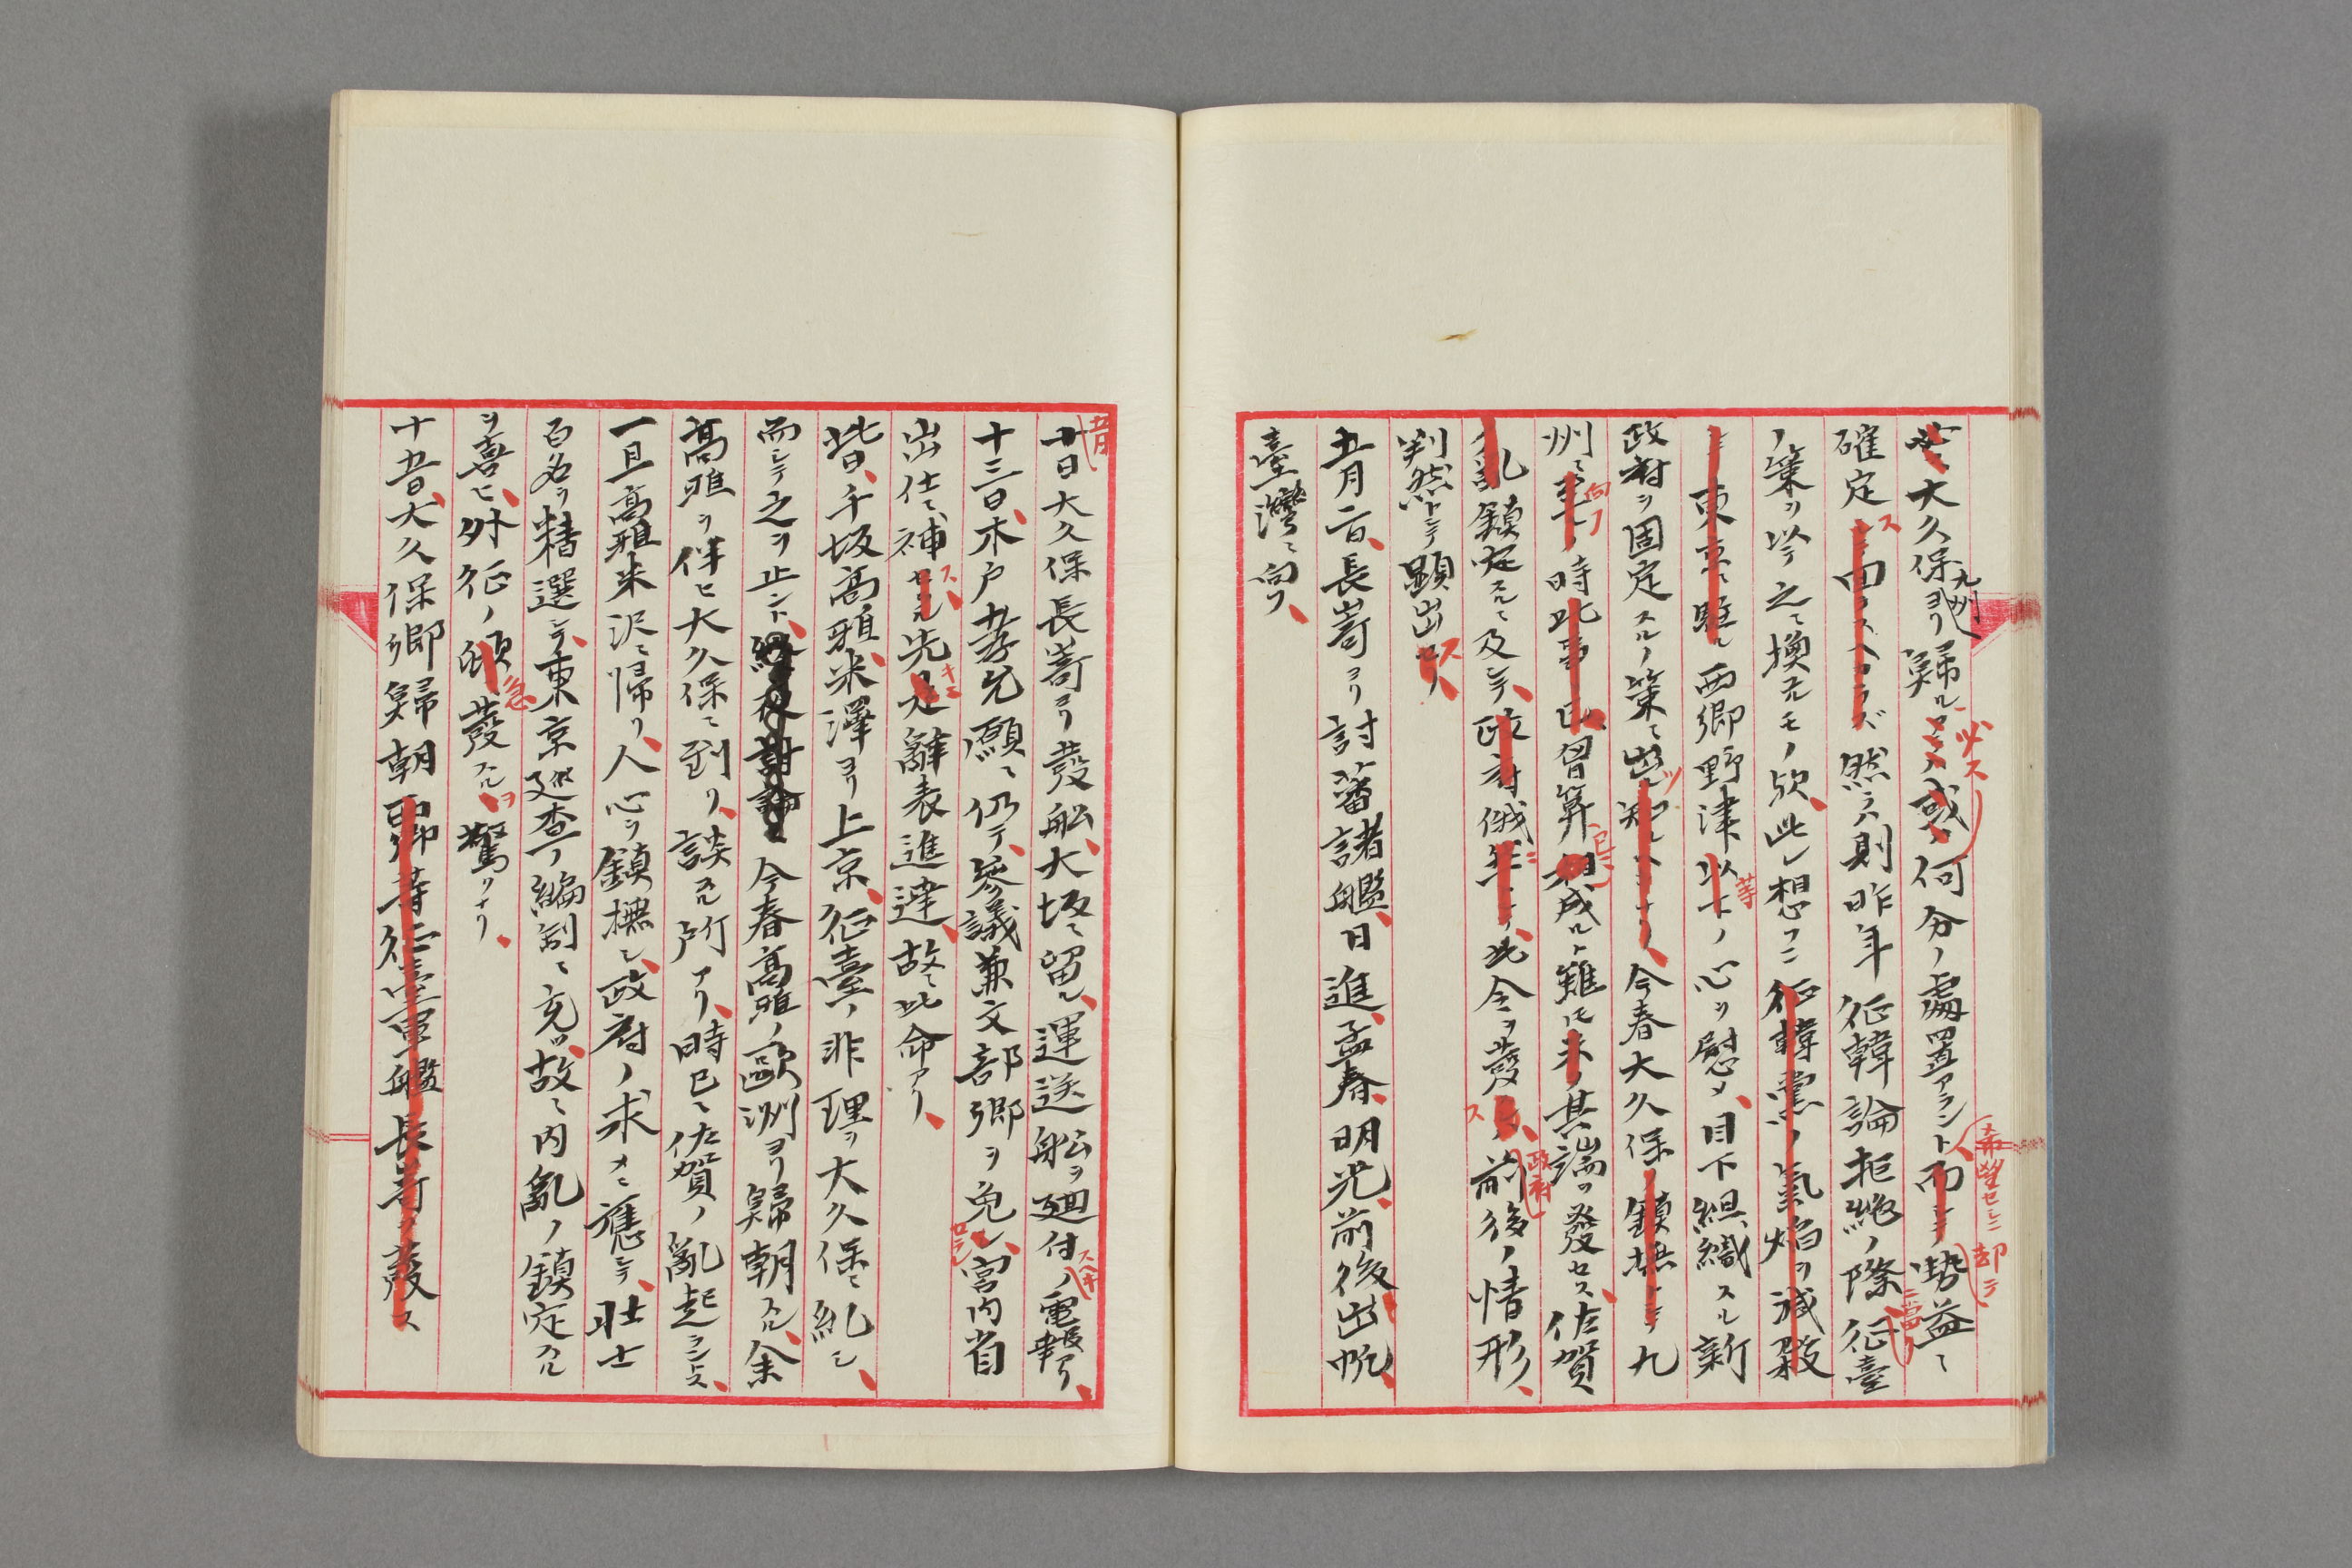 大久保九州ヨリ歸ル必ス何分ノ處置アラント希望セシニ却テ勢益ニ
確定ス然ラハ則昨年征韓論拒絶ノ際ニ當リ征臺
ノ策ヲ以テ之ニ換ヱルモノ欤、此レ想フニ征韓黨ノ氣焰ヲ減殺
シ東京ニ駐ル西郷野津等ノ心ヲ慰メ、目下組織スル新
政府ヲ固定スルノ策ニ出ツ今春大久保ノ鎮撫トシテ九
州ニ向フノ時此事已ニ曾算已ニ成ルト雖モ未タ其端ヲ發セス、佐賀
ノ乱鎮定スルニ及シテ、政府俄ニ此令ヲ發ス政府前後ノ情形、
判然トシテ顕出ス
五月二日、長嵜ヨリ討蕃諸艦、日進、孟春、明光、前後出帆、
臺灣ニ向フ、
五月
十日大久保長嵜ヨリ發舩、大坂ニ留ル、運送舩ヲ廻付スヘキノ電報アリ、
十三日、木戸孝允願ニ仍テ、參議兼文部卿ヲ免シ、宮内省
出仕ニ、補ス、先キニ辭表進達、故ニ此命アリ、
此日、千坂高雅、米澤ヨリ上京、征臺ノ非理ヲ大久保ニ糺シ、
而シテ之ヲ止ント、今春高雅ノ歐洲ヨリ歸朝スル、余
高雅ヲ伴ヒ大久保ニ到リ、談スル所アリ、時已ニ佐賀ノ亂起ラントス、
一旦高雅米沢ニ帰リ、人心ヲ鎮撫シ、政府ノ求メニ應シテ、壮士
百名ヲ精選シテ、東京廵査ノ編制ニ充ツ、故ニ内亂ノ鎮定スル
ヲ喜ヒ、外征ノ急發スルヲ驚クナリ、
十五日、大久保郷歸朝西郷等征臺軍艦長嵜ヲ發ス